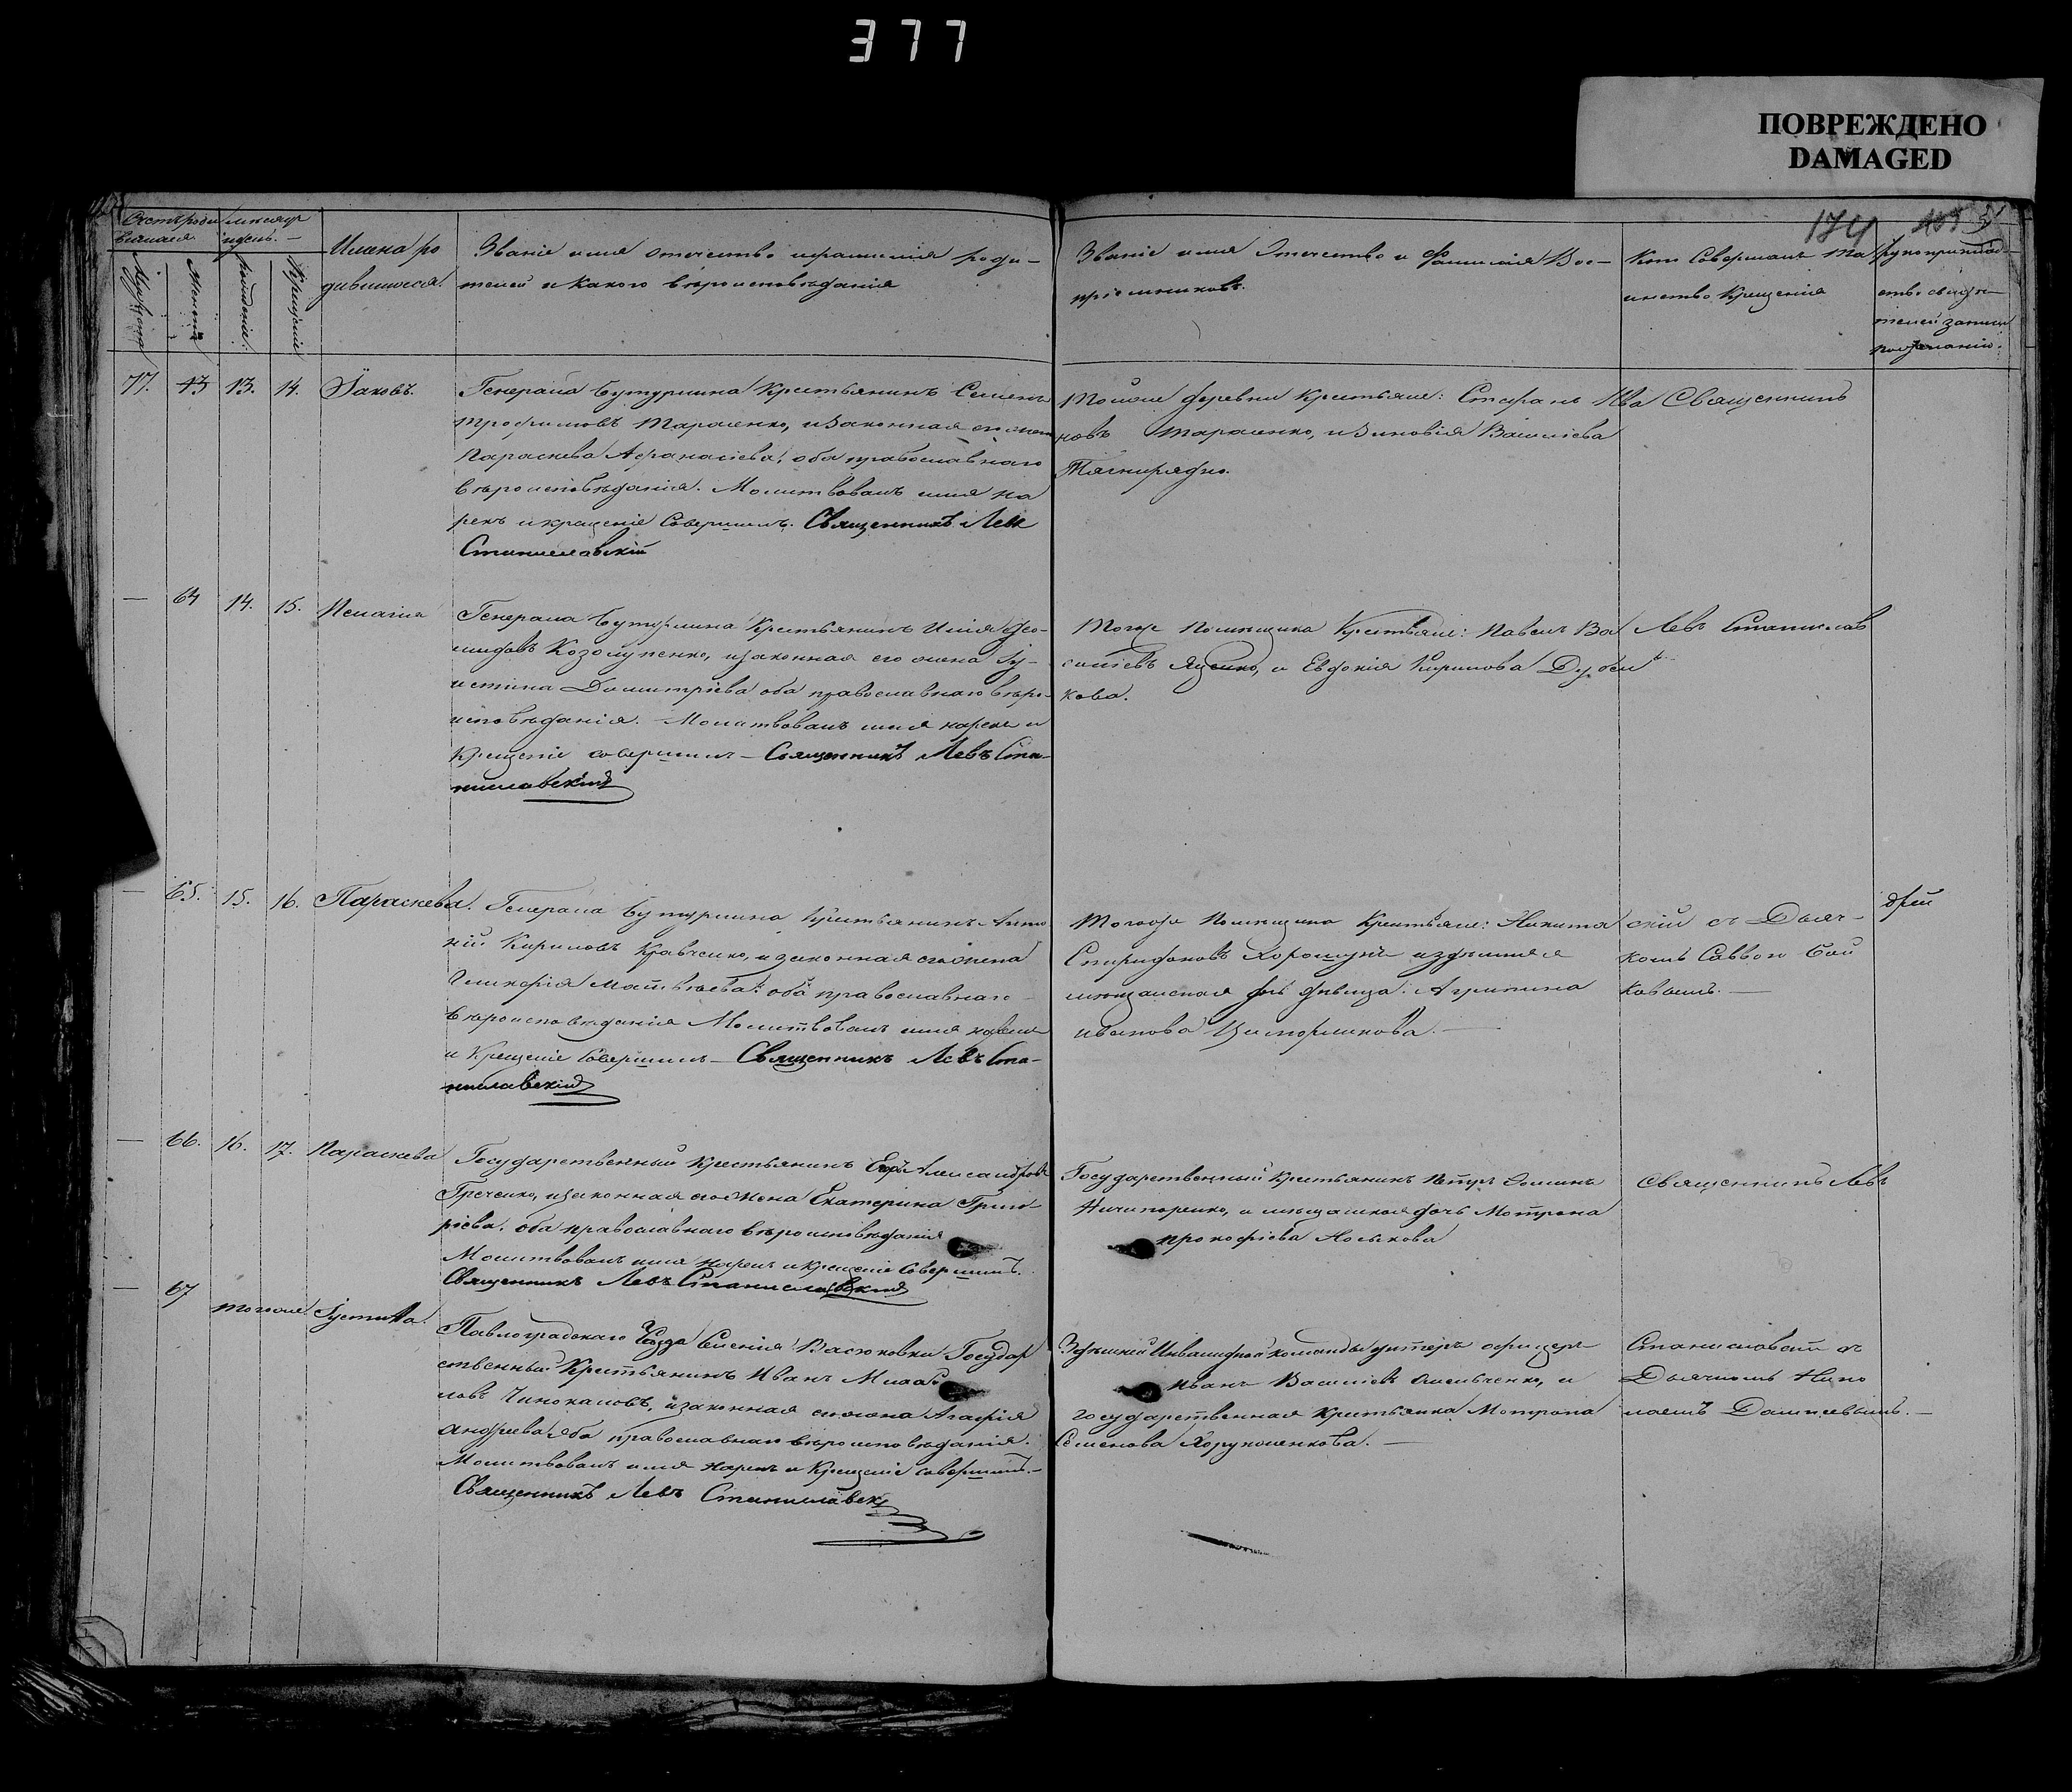 377
ПОВРЕЖДЕНО
DAMAGED
174
Имена ро
дившихся.
Званіе имя отчество и фамилія роди-
телей и какого вѣроисповѣданія
Званіе имя Отчество и Фамилія Вос-
пріемниковъ.
Кто Совершалъ Та
инство Крещенія
Рукоприклад-
ство свидѣ-
телей записи
по желанію.
77. 43 13. 14. Іаковъ.
Генерала Бутурлина Крестьянинъ Семенъ
Трофимовъ Тарасенко, и Законная его жена
Параскева Афанасіева, оба православнаго
вѣроисповѣданія. Молитвовалъ имя на
рекъ и крещеніе Совершилъ. Священникъ Левъ
Станиславскій
Тойже деревни Крестьяне: Стефанъ Ива
новъ Тарасенко, и Зиновія Васильева
Тягнирядно.
Священникъ
— 64 14. 15. Пелагія
Генерала Бутурлина Крестьянинъ Илія Део-
мидовъ Козолупенко, и законная его жена Іу-
истина Димитріева оба православнаго вѣро-
исповѣданія. Молитвовалъ имя нарекъ и
Крещеніе совершилъ — Священникъ Левъ Ста-
ниславскій
Тогоже Помѣщика Крестьяне: Павелъ Ва
силіевъ Яценко, и Евдокія Кирилова
кова.
Левъ Станислав
— 65. 15. 16. Параскева.
Генерала Бутурлина Крестьянинъ Анто
ній Кириловъ Кравченко, и законная его жена
Гликерія Матвѣева: оба православнаго
вѣроисповѣданія Молитвовалъ имя нарекъ
и Крещеніе Совершилъ — Священникъ Левъ Ста-
ниславскій
Тогоже Помѣщика Крестьяне: Никита
Спиридоновъ и здѣшняя
мѣщанская дочь дѣвица: Агрипина
Иванова
скій съ Дьяч-
комъ Саввою Бой
ковымъ. —
— 66. 16. 17. Параскева
Государственный Крестьянинъ Александровъ
Гречено, и законная его жена Екатерина Григо-
ріева, оба православнаго вѣроисповѣданія
Молитвовалъ имя нарекъ и крещеніе Совершилъ.
Священникъ Левъ Станиславскій
Государственный Крестьянинъ Петръ Фоминъ
Ничипоренко, и мѣщанская дочь Мотрона
Прокофіева Носикова
Священникъ Левъ
— 67 тогоже Іустина.
Павлоградскаго Уѣзда Селенія Васюковки Государ
ственный Крестьянинъ Иванъ Михай
ловъ и законная его жена Агафія
Андреева оба православнаго вѣроисповѣданія.
Молитвовалъ имя нарекъ и Крещеніе совершилъ. —
Священникъ Левъ Станиславскі
Здѣшней Инвалидной команды унтеръ офицеръ
Иванъ Василіевъ Омельченко, и
государственная крестьянка Мотрона
Семенова Хорунженкова. —
Станиславскій съ
Дьячкомъ Нико
лаемъ —